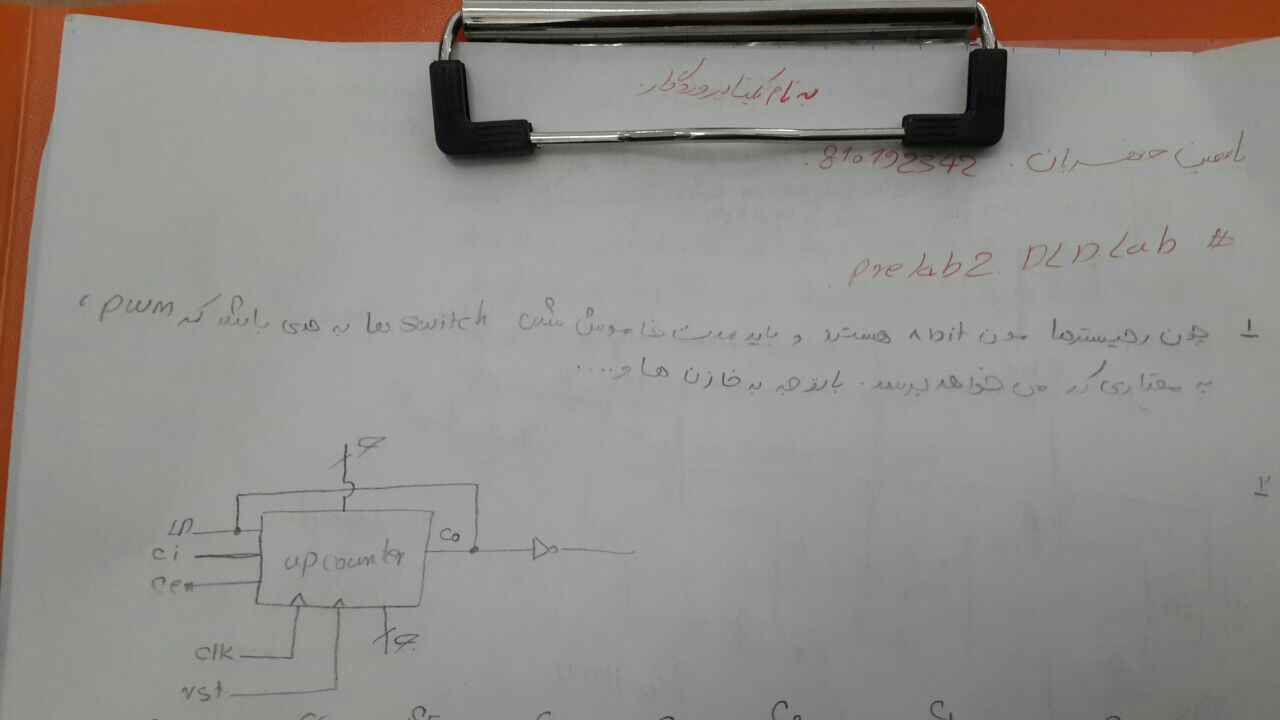 به نام یکتا پروردگار.
یاسمین جعفریان. 810192342.
# prelab2 DLDLab
1 چون رجیسترها مون 8bit هستند و باید مدت خاموش شدن switch ها به حدی باشد که pwm،
به مقداری که می خواهد برسد. باتوجه به خازن ها و....
2
LD
Ci
Co
up counter
clk
rst